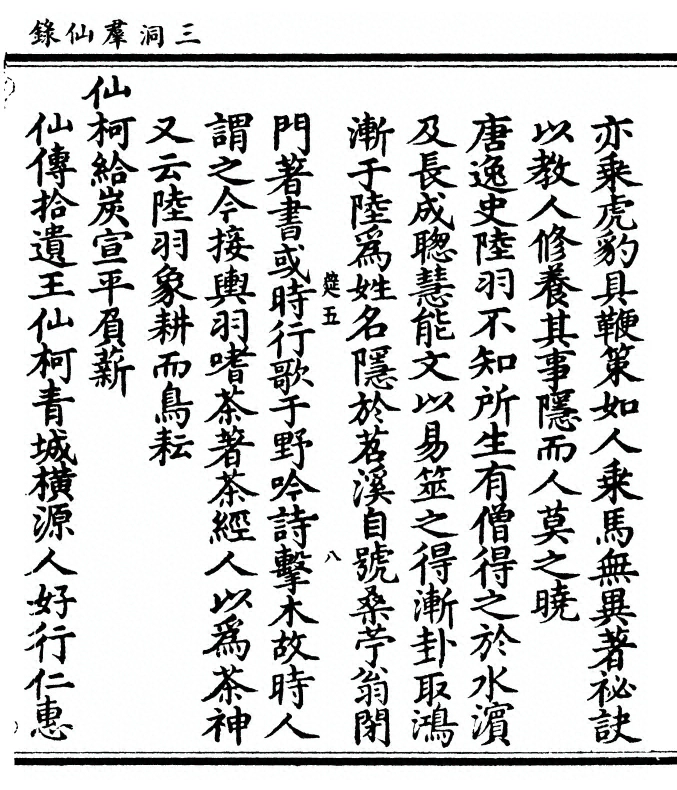 三洞羣仙錄
亦乗虎豹具鞭策如人乗馬無異著祕訣
以教人修養其事隱而人莫之曉
唐逸史陸羽不知所生有僧得之於水濵
及長成聰慧能文以易筮之得漸卦取鴻
漸于陸爲姓名隱於苕溪自號桑苧翁閉
筵五
八
門著書或時行歌于野吟詩擊木故時人
謂之今接輿羽嗜茶著茶經人以爲茶神
又云陸羽象耕而鳥耘
仙柯給炭宣平負薪
仙傳拾遺王仙柯青城横源人好行仁惠